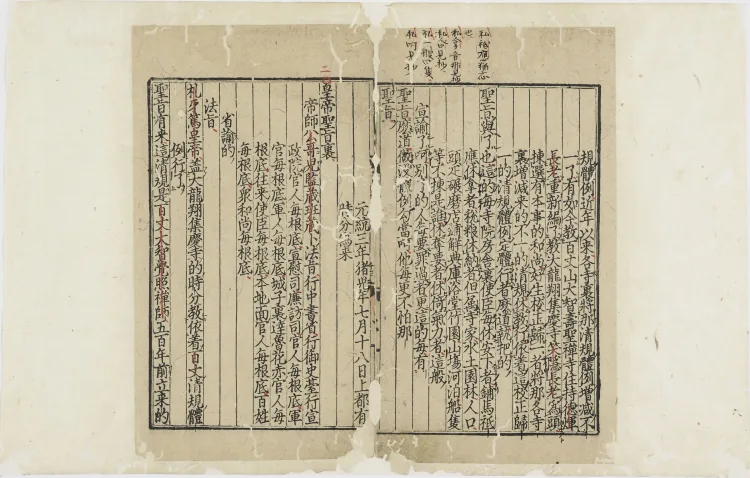 規體例近年以來各寺裏將那清規體例增減不
一了有如今教百丈山大智壽聖禪寺住持德煇
長老重新編了教大龍翔集慶寺笑隱長老為頭
揀選有本事的和尚好生校正歸一者將那各寺
裏增減來的不一的清規休教行依着這校正歸
一的清規體例定體行者麼道執把的
聖旨與了也這的每寺院房舍裏使臣每休安下者鋪馬祗
應休拿者稅糧休納者但属寺家的水土園林人口
頭疋碾磨店鋪解典庫浴堂竹園山場河泊船隻
等不揀是誰休奪要者休倚氣力者這般
宣諭了呵別了的人每要罪過者更這的每有
聖旨麼道做沒體例勾當呵他每更不怕那
聖旨
元統三年猪兒年七月十八日上都有
時分寫來
皇帝聖旨裏
帝師公哥兒監藏班藏卜法旨行中書省行御史臺行宣
政院官人每根底宣慰司廉訪司官人每根底軍
官每根底軍人每根底城子裏達魯花赤官人每
根底往來使臣每根底本地面官人每根底百姓
每根底眾和尚每根底
省諭的
法旨
札牙篤皇帝盖大龍翔集慶寺的時分教依着百丈清規體
例行了
聖旨有來這清規是百丈大智覺照禪師五百年前立來的